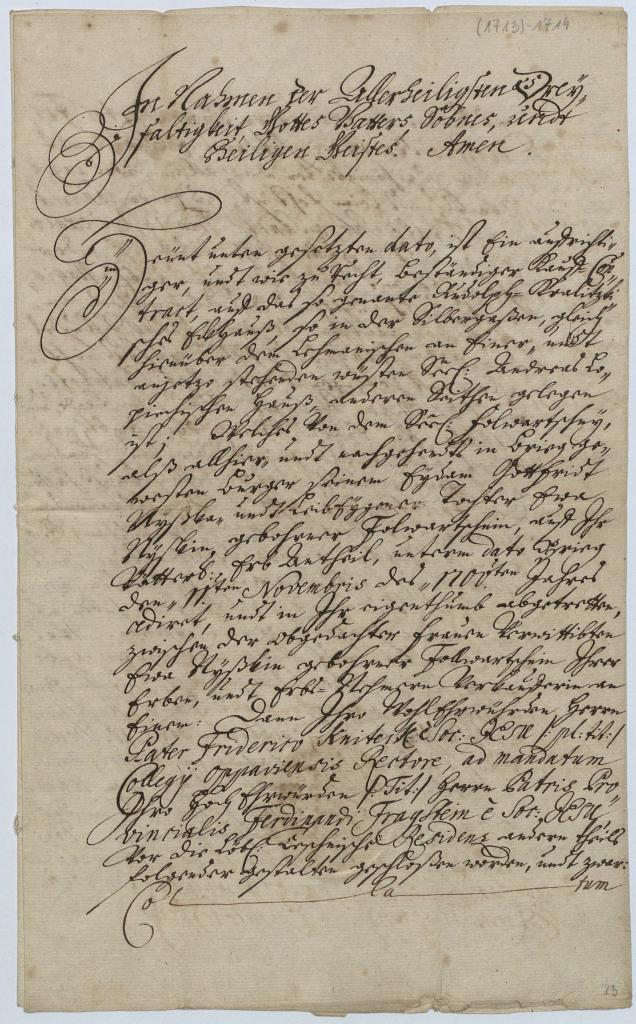 (1713)-1714
In Nahmen der Allerheiligsten Drey-
faltigkeit, Gottes Vatters, Sohnes, undt
Heiligen Geistes. Amen.
Heünt unten gesetzten dato, ist Ein aufrichti-
ger, undt wie zu Recht, beständiger Kauf-Con-
tract, auf das so genante Rudolph-Kralitzki-
sches Eckhauß so in der Silbergaßen, gleich
hienüber dem Lehmanischen an Einer, undt
anjetzo stehenden wüsten Seel: Andreas Lo-
piechischen Hauß, anderen Seithen gelegen
ist; Welches Von dem Seel: Folwartschny,
alß allhier, undt nachgehendts in Brieg ge-
westen Burger seinem Eydam Gottfridt
Nyßka, undt Leibeygener Tochter Ewa
Nyßkin, gebohrner Folwartschnin, auf Ihr
Vatterl: Erb Antheil, unterm dato Brieg
den 11ten Novembris des 1700ten Jahres
cediret, undt in Ihr eigenthumb abgetretten,
zwischen der obgedachter Frauen Verwittibten
Ewa Nyßkin gebohrner Follwartschnin Ihrer
Erben, undt Erbs-Nehmern Verkäufferin an
Einem: Dann Ihro WohlEhrwürden Herrn
Pater Friderico Kniteisl è Soc: JESU /:pl:tit:/
Collegÿ Oppaviensis Rectore, ad mandatum
Ihro HochEhrwürden /:Tit:/ Herrn Patris Pro-
vincialis Ferdinandi Fragstein è Soc: JESU
Vor die Löbl: Teschnische Residenz andern theils
folgender gestalten geschloßen worden, undt zwar:
Co la tum
13